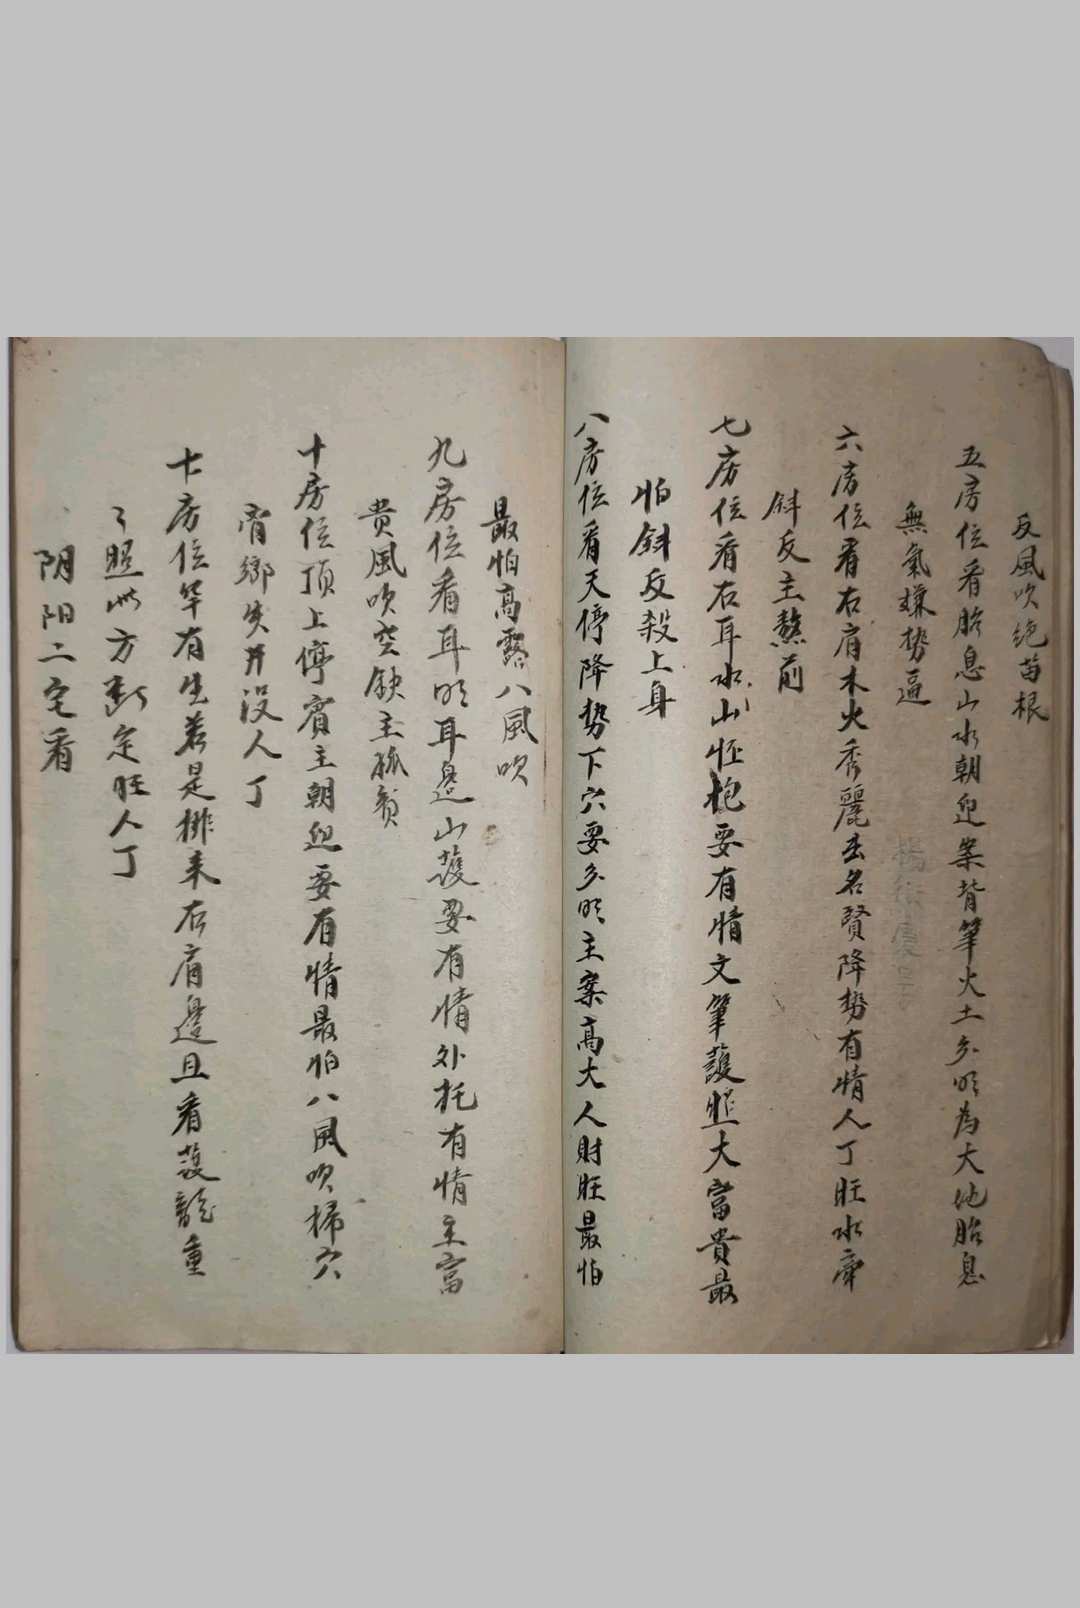 反風吹絶苗根
五房位看胎息山水朝迎案背筆火土分明為大地胎息
無氣嫌勢逼
六房位看右肩木火秀麗出名賢降勢有情人丁旺水牽
斜反主熬煎
七房位看右耳水山恠抱要有情文筆護照大富貴最
怕斜反殺上身
八房位看天停降勢下穴要分明主案高大人財旺最怕
最怕高露八風吹
九房位看耳明耳邊山護要有情外托有情主富
貴風吹空缺主孤貧
十房位頂上停賓主朝迎要有情最怕八風吹掃穴
背鄉失井沒人丁
十房位罕有生若是排来右肩邊且看護龍重
々照此方斷定旺人丁
阴阳二宅看